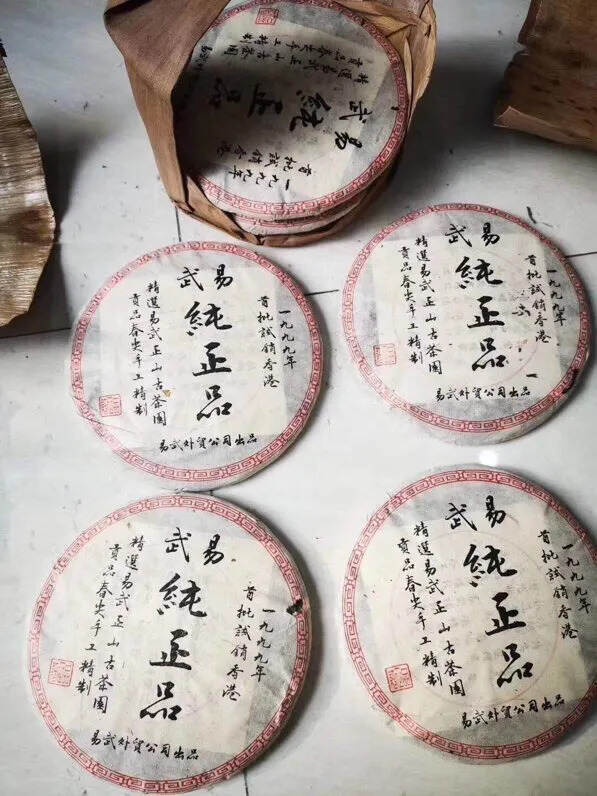 易武
一九九九年
首批試銷香港
純正品
精選易武正山古茶園
貢品春尖手工精制
易武
一九九九年
首批試銷香港
純正品
精選易武正山古茶園
貢品春尖手工精制
易武外貿公司出品
易武
一九九九年
首批試銷香港
純正品
精選易武正山古茶園
貢品春尖手工精制
易武外貿公司出品
易武
一九九九年
首批試銷香港
純正品
精選易武正山古茶園
貢品春尖手工精制
易武外貿公司出品
易武
一九九九年
首批試銷香港
純正品
精選易武正山古茶園
貢品春尖手工精制
易武外貿公司出品